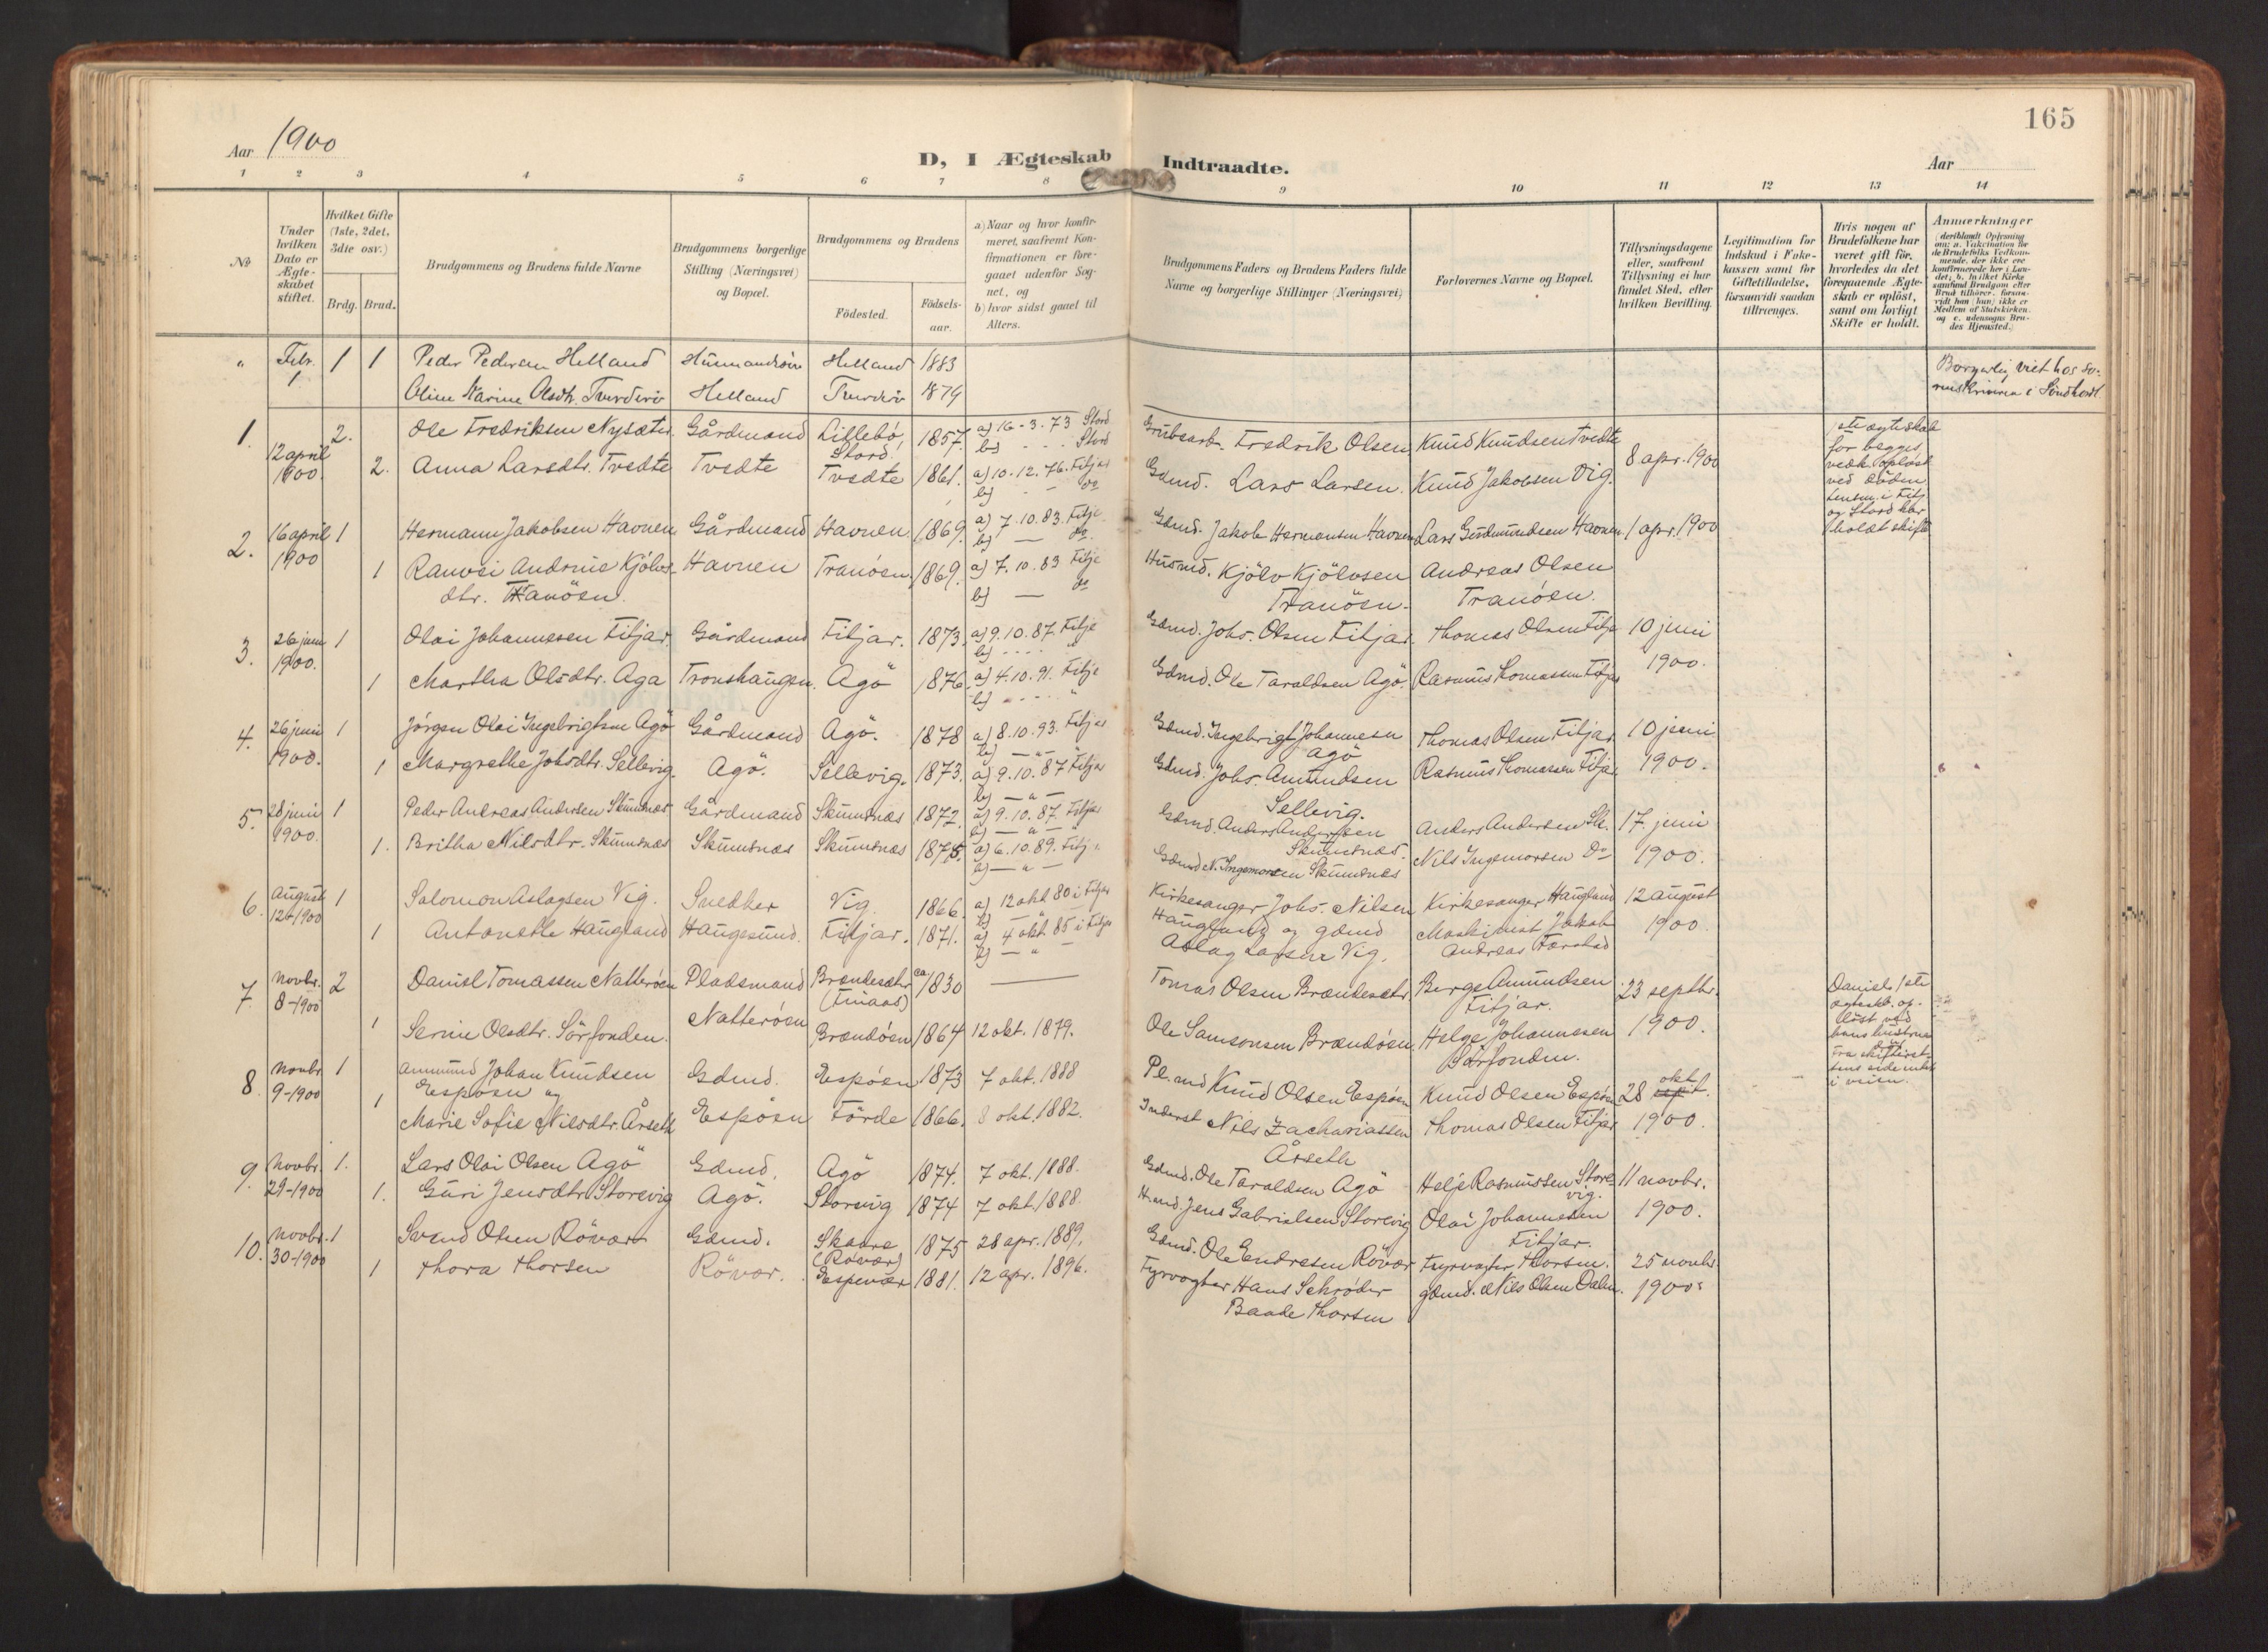 165
Aar 1900
D, I Ægteskab Indtraadte.
Aar
1 2 3 4 5 6 7 8 9 10 11 12 13 14
No
Under hvilken Dato er Ægteskabet stiftet.
Hvilket Gifte (1ste, 2det, 3die osv.)
Brdg. Brud.
Brudgommens og Brudens fulde Navne
Brudgommens borgerlige Stilling (Næringsvei) og Bopæl.
Brudgommens og Brudens
Födested.
Födsels-aar.
a) Naar og hvor konfirmeret, saafremt Konfirmationen er foregaaet udenfor Sognet, og
b) hvor sidst gaaet til Alters.
Brudgommens Faders og Brudens Faders fulde Navne og borgerlige Stillinger (Næringsvei)
Forlovernes Navne og Bopæl.
Tillysningsdagene eller, saafremt Tillysning ei har fundet Sted, efter hvilken Bevilling.
Legitimation for Indskud i Enkekassen samt for Giftetilladelse, forsaavidt saadan tiltrænges.
Hvis nogen af Brudefolkene har været gift för, hvorledes da det foregaaende Ægteskab er oplöst, samt om lovligt Skifte er holdt.
Anmærkninger
(deriblandt Oplysning om: a. Vakcination for de Brudefolks Vedkommende, der ikke ere konfirmerede her i Landet; b. hvilket Kirkesamfund Brudgom eller Brud tilhörer, forsaavidt han (hun) ikke er Medlem af Statskirken, og c. udensogns Brudes Hjemsted.)
" Febr. 1 1 1 Peder Pedersen Helland Husmandssön Helland 1883 Borgerlig viet hos Sorenskriveren i Söndhordl.
Oline Marine Olsdtr. Tverderö Helland Tverderö 1879
1. 12 april 1900. 2. Ole Fredriksen Nysæter. Gårdmand Lillebö, Stord. 1857. a) 16-3.73 Stord b) - - - Stord Grubearb. Fredrik Olsen Knud Knudsen Tvedte 8 apr. 1900 1ste ægteskab for begges vedk. oplöst ved döden Lensm. i Fitj. og Stord har holdt skifte
2. Anna Larsdtr. Tvedte Tvedte Tvedte 1861. a) 10.12.76. Fitjar b) - - do Gdmd. Lars Larsen. Knud Jakobsen Vig.
2. 16 april 1900 1 Hermann Jakobsen Havnen Gårdmand Havnen. 1869. a) 7.10.83. Fitje b) — do. Gdmd. Jakob Hermansen Havnen Lars Gudmundsen Havnen 1 apr. 1900
1 Ranvei Andrine Kjölvs-dtr. Tranöen. Havnen Tranöen. 1869. a) 7.10.83 Fitje b) — do Husmd. Kjölv Kjölvsen Tranöen. Andreas Olsen Tranöen.
3. 26 juni 1900. 1 Olai Johannesen Fitjar. Gårdmand Fitjar. 1873. a) 9.10.87. Fitje b) - - - - " Gdmd. Johs. Olsen Fitjar. Thomas Olsen Fitje 10 juni 1900.
1 Martha Olsdtr. Aga Tronshaugen. Agö 1876. a) 4.10.91. Fitje b) - - - - " Gdmd. Ole Taraldsen Agö. Rasmus Tomassen Fitjar
4. 26 juni 1900. 1 Jörgen Olai Ingebrigtsen Agö Gårdmand Agö. 1878 a) 8.10.93. Fitjar b) — " — Gdmd. Ingebrigt Johannesen Agö Thomas Olsen Fitjar. 10 juni 1900.
1 Margrethe Johsdtr. Sellevig. Agö. Sellevig. 1873. a) 9.10.87 Fitjar b) — " — Gdmd. Johs. Amundsen Sellevig. Rasmus Tomassen Fitjar
5. 28 juni 1900. 1 Peder Andreas Andersen Skumsnæs Gårdmand Skumsnæs 1872. a) 9.10.87. Fitjar b) — " — " Gdmd. Anders Andersen Skumsnæs. Anders Andersen Sk. 17. juni 1900.
1. Britha Nilsdtr. Skumsnæs Skumsnæs Skumsnæs 1875. a) 6.10.89. Fitj. b) — " — Gdmd N. Ingemorsen Skumsnæs Nils Ingemorsen Do
6. August 12-1900 1 Salomon Aslagsen Vig. Snedker Vig. 1866. a) 12 okt 80 i Fitjar b) — " — Kirkesanger Johs. Nilsen Haugland og gdmd Aslag Larsen Vig. Kirkesanger Haugland Maskinist Jakob Andreas Færstad 12 august 1900.
1 Antonette Haugland Haugesund. Fitjar. 1871. a) 4 okt 85 i Fitjar b) — " —
7. Novbr. 8-1900 2 Daniel Tomassen Natterøen Pladsmand Brandesætr (Finaas) ca 1830 — Tomas Olsen Brandesætr Berge Amundsen Fitjar. 23 septbr. 1900. Daniels 1ste ægteskb. opløst ved hans hustrues død
1 Serine Olsdtr. Sörfonden. Natterøen Brandöen 1864 12 okt. 1879. Ole Samsonsen Brandösen. Helge Johannesen Sörfonden. Fra skifterettens side intet i veien.
8. Novbr 9-1900 1 Ammund Johan Knudsen Espösen og Gdmd. Espösen 1873 7 okt. 1888 Pl.md Knud Olsen Espösen Knud Olsen Espösen 28 okt. 1900.
1 Marie Sofie Nilsdtr. Årseth Espösen Förde 1866. 8 okt. 1882. Inderst Nils Zachariassen Årseth Thomas Olsen Fitjar
9. Novbr. 29-1900 1. Lars Olai Olsen Agö Gdmd. Agö 1874. 7 okt. 1888. Gdmd. Ole Taraldsen Agö Helje Rasmussen Storevig. 11 novbr. 1900.
1. Guri Jensdtr Storevig Agö. Storevig 1874 7 okt. 1888. H.md. Jens Gabrielsen Storevig Olai Johannesen Fitjar.
10. Novbr. 30-1900 1 Svend Olsen Rövær Gdmd. Skaare (Rövær) 1875 28 apr. 1889. Gdmd. Ole Endresen Rövær Fyrvogter Thorsen. 25 novbr. 1900.
1 Thora Thorsen Rövær. Espevær 1881. 12 apr. 1896. Fyrvogter Hans Schrøder Baade Thorsen gdmd. Nils Olsen Dalen.